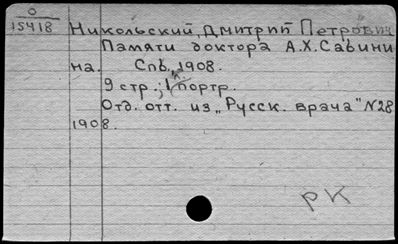 О
15418
Никольский, Дмитрий Петрович
Памяти доктора А.Х. Сабини
на. Спб., 1908.
9 стр.; 1 портр.
Отд. отт. из „Русск. врача" N28
1908.
РК